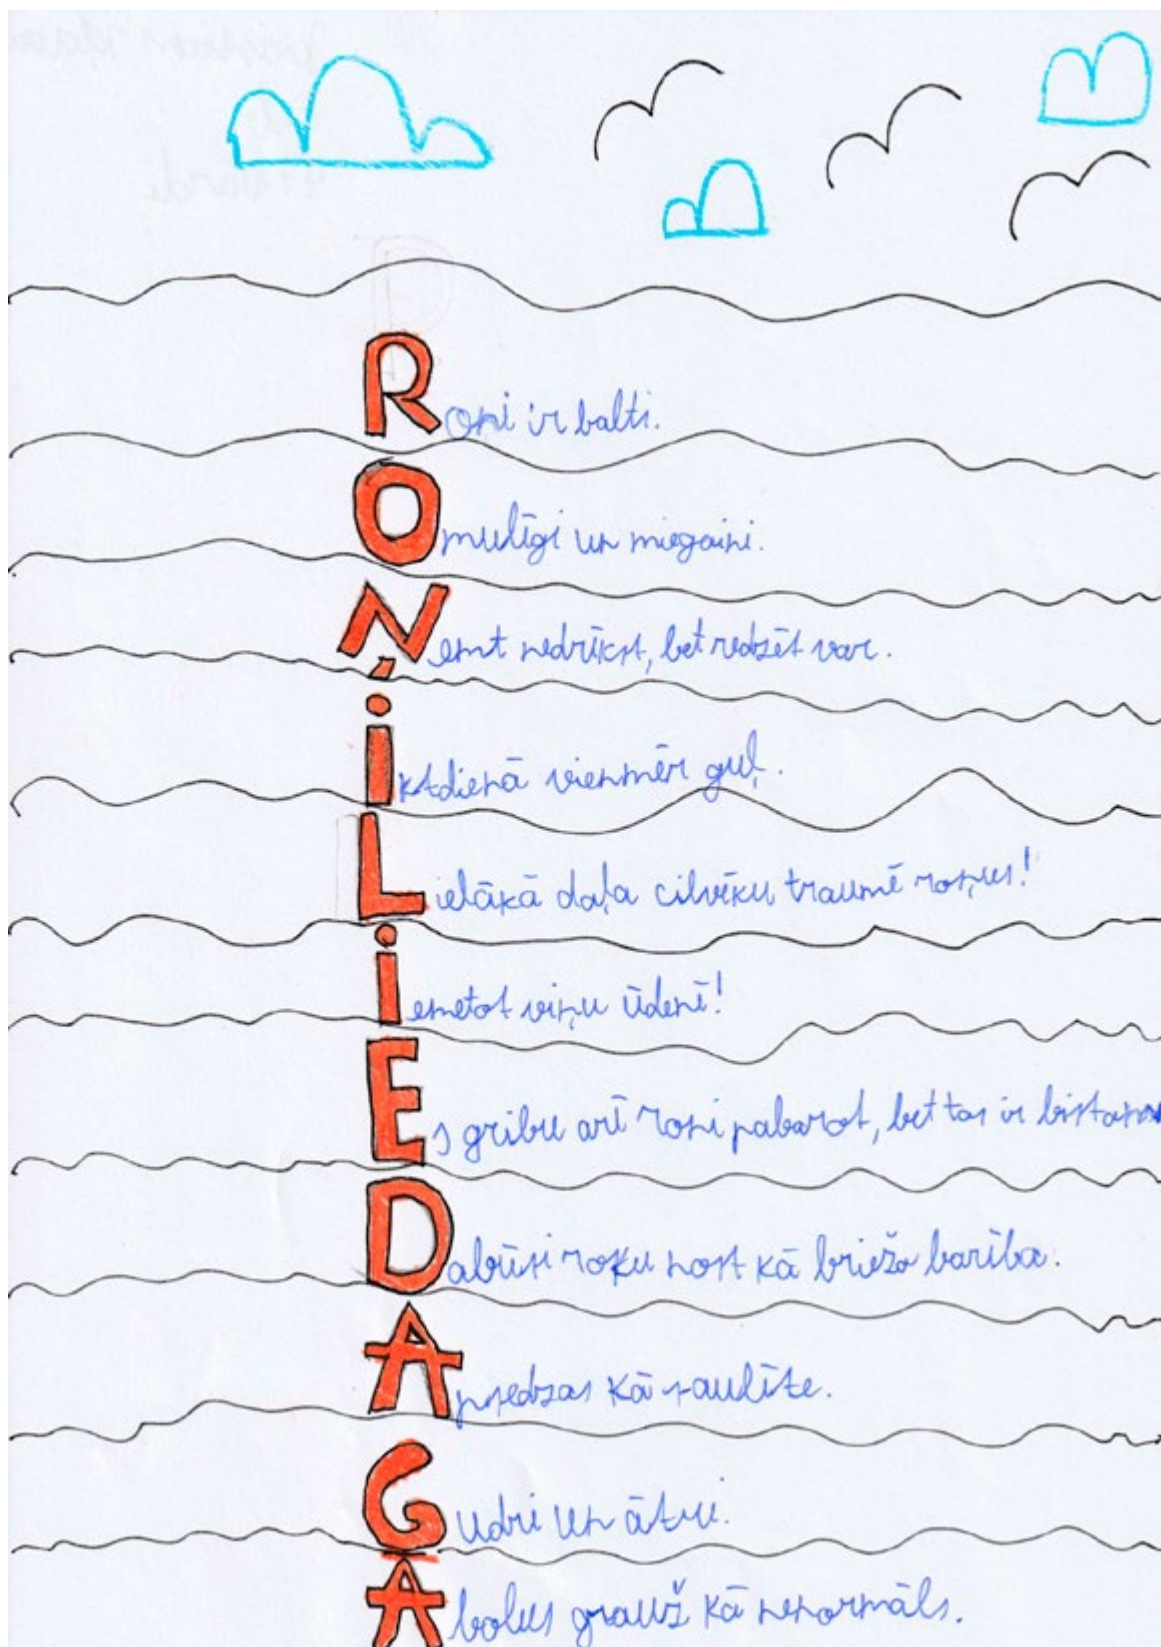 Roņi ir balti.
Omulīgi un miegaini.
Ņemt nedrīkst, bet redzēt var.
ikdienā vienmēr guļ.
Lielākā daļa cilvēku traumē roņus!
iemetot viņu ūdenī!
Es gribu arī roni pabarot, bet tas ir
Dabūsi roku nost kā brieža barība.
Apsedzas kā saulīte.
Gudri un ātri.
Abolus grauž kā nenormāls.